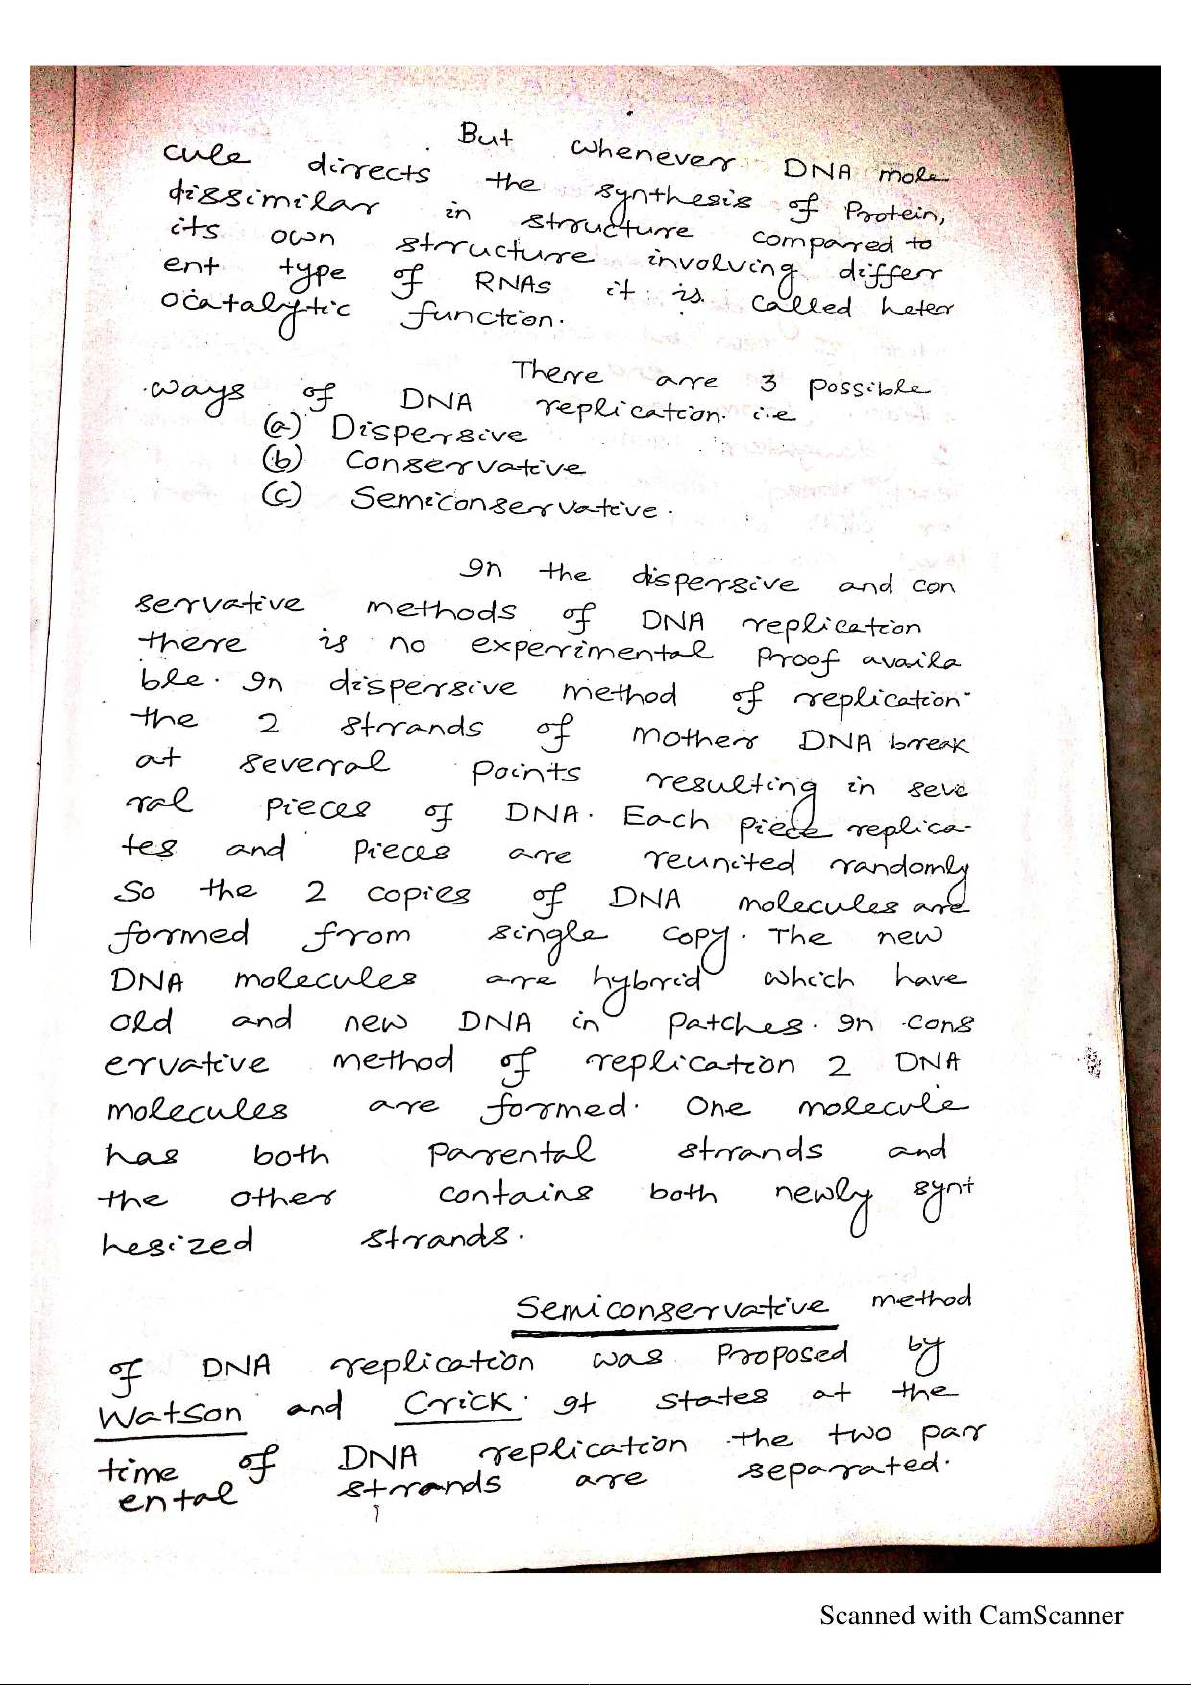 But whenever DNA mole
cule directs the synthesis of Protein,
dissimilar in structure compared to
its own structure involving differ
ent type of RNAs it is called heter
ocatalytic function.
There are 3 possible
ways of DNA replication i.e
(a) Dispersive
(b) Conservative
(c) Semiconservative.
In the dispersive and con
servative methods of DNA replication
there is no experimental proof availa
ble. In dispersive method of replication
the 2 strands of mother DNA break
at several points resulting in seve
ral pieces of DNA. Each piece replica-
tes and pieces are reunited randomly
So the 2 copies of DNA molecules are
formed from single copy. The new
DNA molecules are hybrid which have
old and new DNA in patches. In cons
ervative method of replication 2 DNA
molecules are formed. One molecule
has both parental strands and
the other contains both newly synt
hesized strands.
Semiconservative method
of DNA replication was proposed by
Watson and Crick. It states at the
time of DNA replication the two par
ental strands are separated.
Scanned with CamScanner